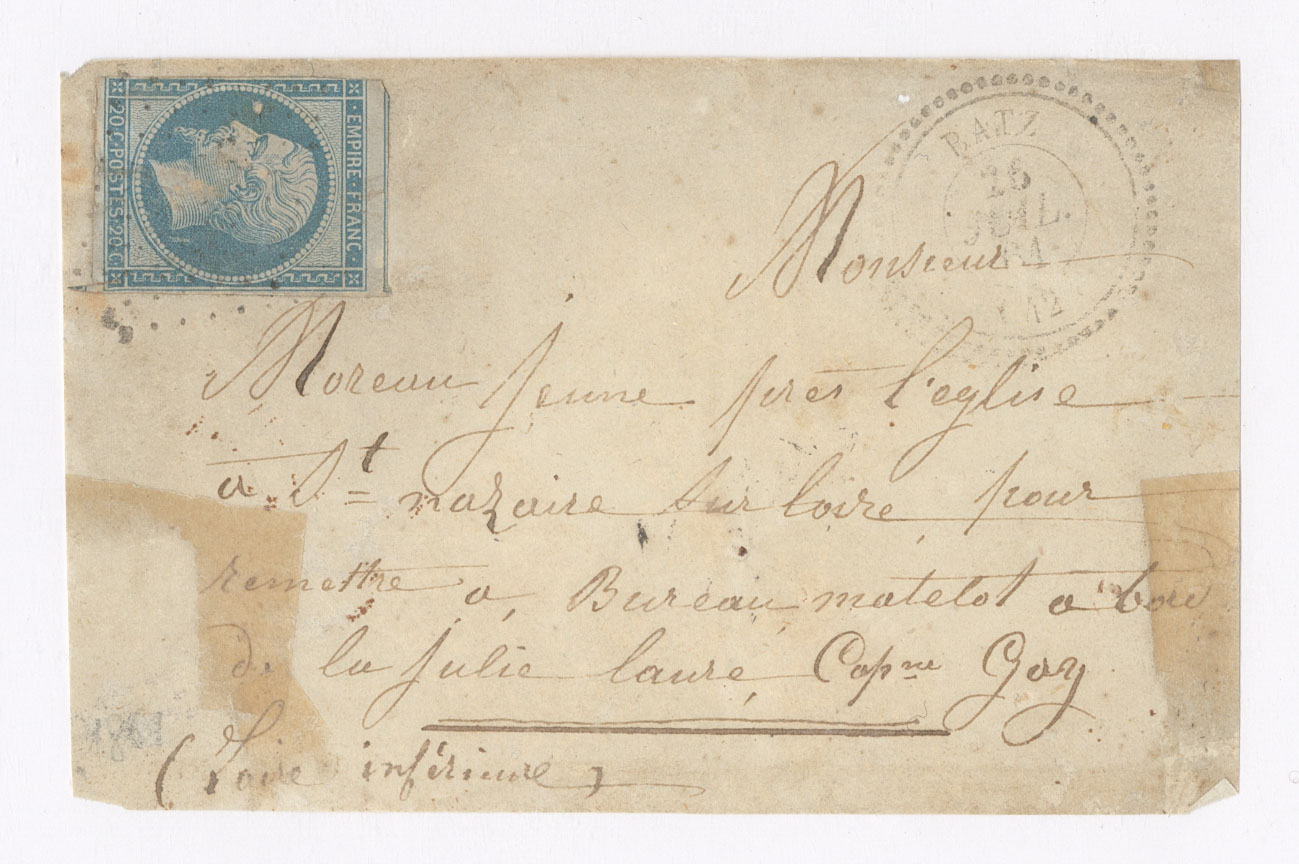 EMPIRE · FRANC ·
20 C · POSTES · 20 C ·
BATZ
26
JUIL.
61
Monsieur
Moreau jeune près l'eglise
a St nazaire sur loire, pour
remettre a Bureau matelot a bord
de la julie laure, Capne Goy
(Loire inférieure)